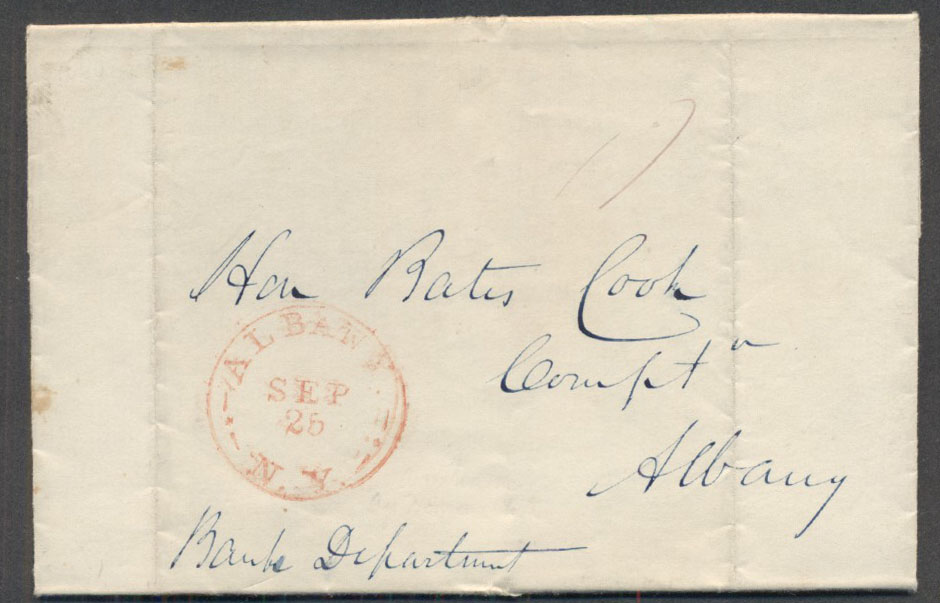 Hon Bates Cook
Comptr
Albany
ALBANY
SEP
N.Y.
Bank Department